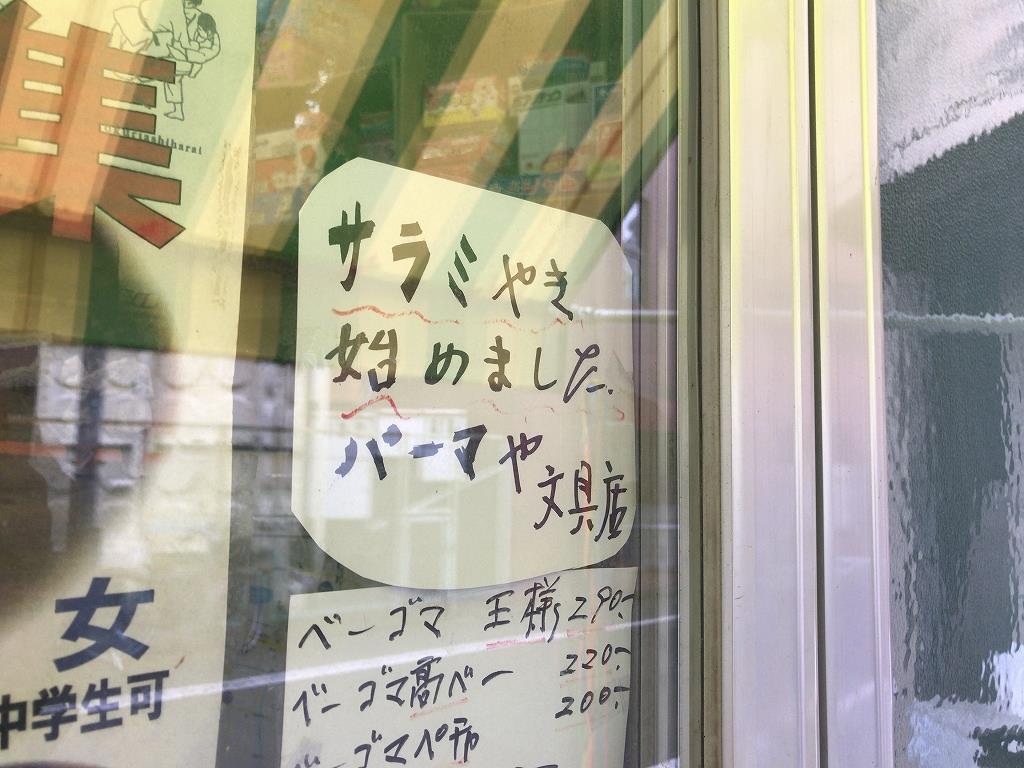 集
Okuriashiharai
サラミやき
始めました.
パーマや
文具店
ベーゴマ 王様 290.-
ベーゴマ高ベー 220.-
200.-
ベーゴマペ
女
中学生可